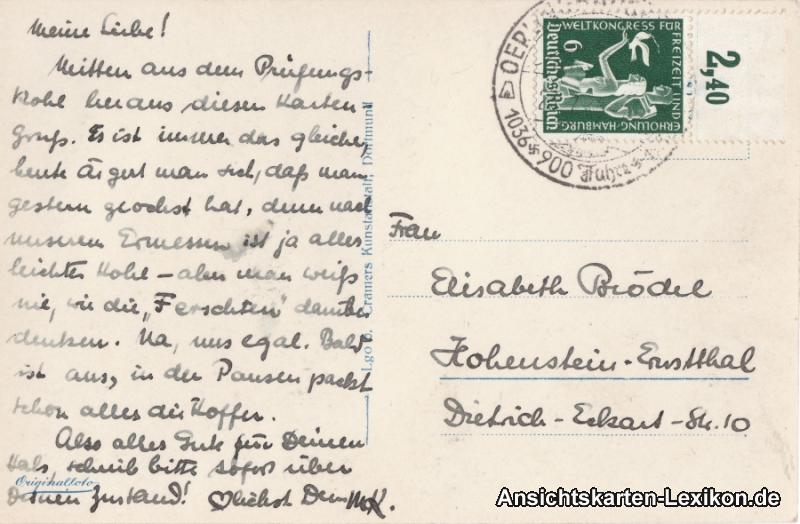 Meine Liebe!
Mitten aus dem Prüfungs-
kohl heraus diesen Karten
gruß. Es ist immer das gleiche,
heute ärgert man sich, daß man
gestern geochst hat, denn nach
unserem Ermessen ist ja alles
leichter Kohl – aber man weiß
nie, wie die „Ferschten" darüber
denken. Na, uns egal. Bald
ist aus, in den Pausen packt
schon alles die Koffer.
Also alles Gute für Deinen
Hals, schreib bitte sofort über
Deinen Zustand!
Originalfoto
Lgo Cramers Kunstanstalt, Dortmund
OEDE
1036 900 Jahre
WELTKONGRESS FÜR
FREIZEIT UND
ERHOLUNG·HAMBURG
Deutsches Reich
6
2,40
Frau
Elisabeth Brödel
Hohenstein-Ernstthal
Dietrich-Eckart-Str. 10
Ansichtskarten-Lexikon.de